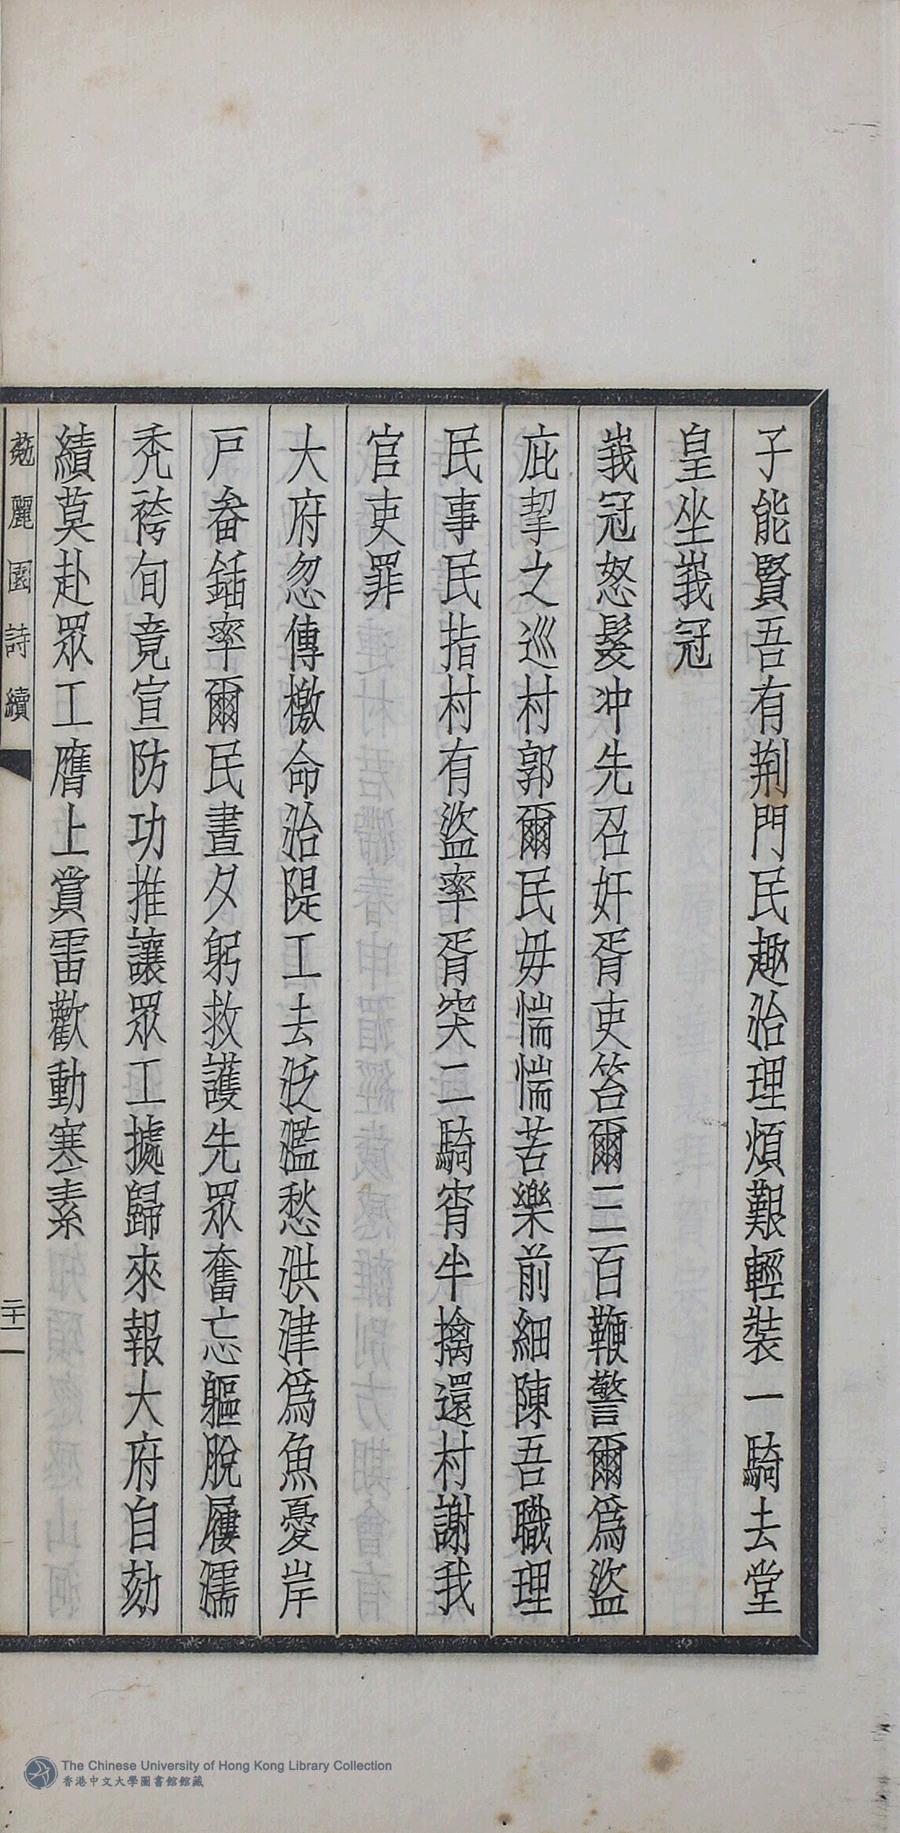 子能賢吾有荆門民趣治理煩艱輕裝一騎去堂
皇坐峩冠
峩冠怒髮冲先召奸胥吏笞爾三百鞭警爾爲盜
庇挈之巡村郭爾民毋惴惴苦樂前細陳吾職理
民事民指村有盜率胥突二騎宵半擒還村謝我
官吏罪
大府忽傳檄命治隄工去泛濫愁洪津爲魚憂岸
戸畚鍤率爾民晝夕躬救護先眾奮忘軀脫屨濡
禿袴旬竟宣防功推讓眾工據歸來報大府自劾
績莫赴眾工膺上賞雷歡動寒素
麗園詩續
二十一
The Chinese University of Hong Kong Library Collection
香港中文大學圖書館館藏